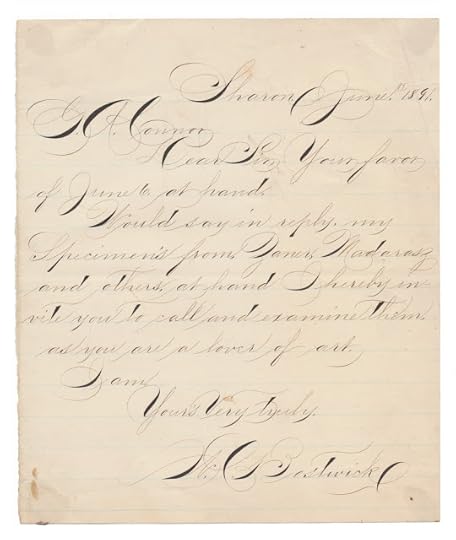 Sharon June 1891.
G. A. Connor,
Dear Sir, Your favor
of June 6 at hand.
Would say in reply, my
Specimens from Zaner, Madarasz
and others, at hand I hereby in-
vite you to call and examine them.
as you are a lover of art.
I am,
Yours Very Truly.
Bostwick